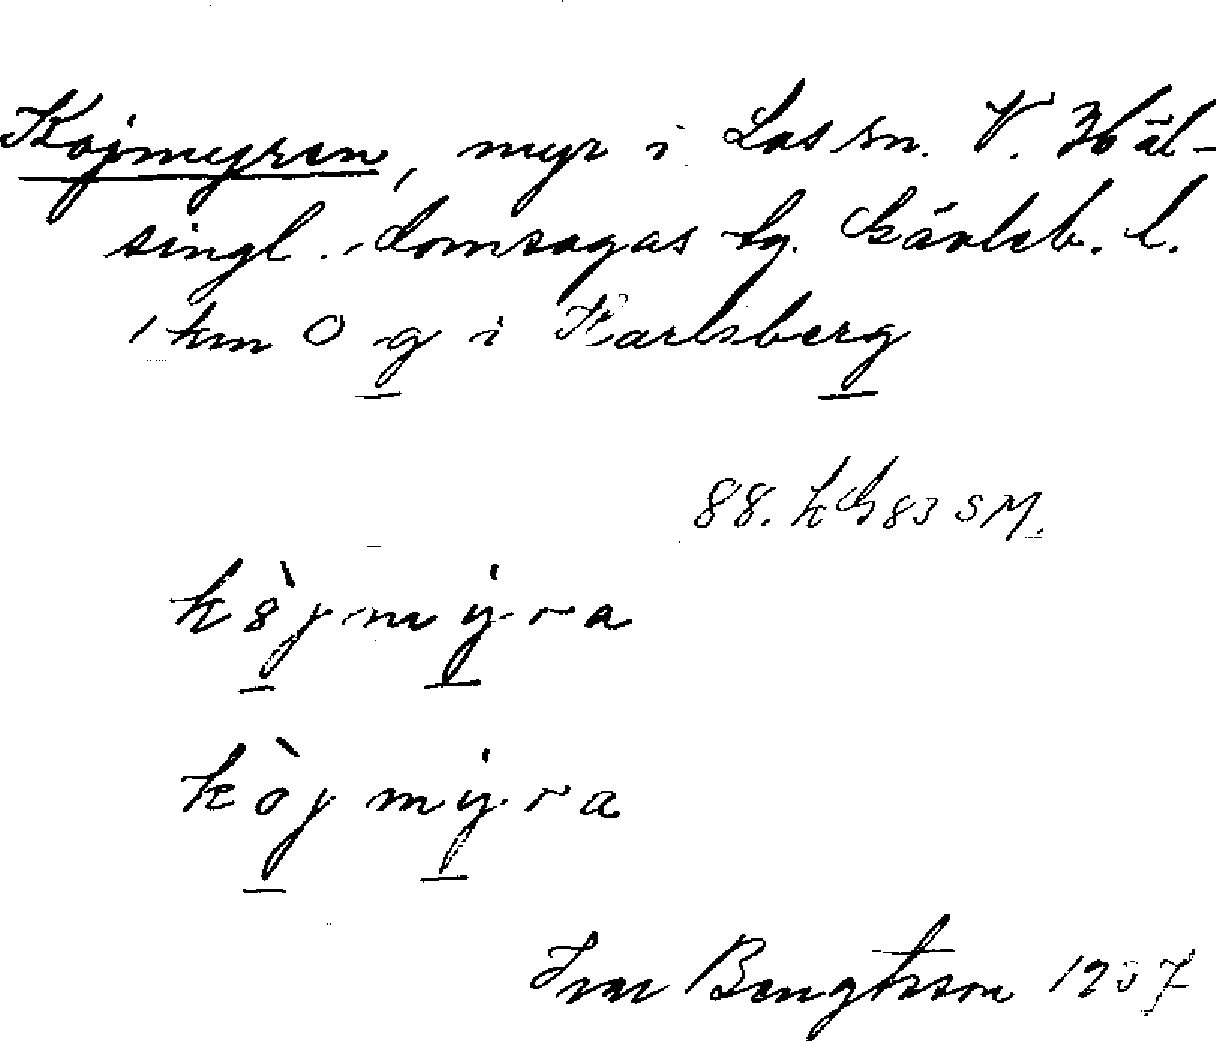 Kojmyren, myr i Los sn. V. Häl-
singl. domsagas tg. Gävleb. l.
1 km O g i Karlsberg
88. h 83 SM.
kòjmyra
kòjmyra
Ivar Bengtsson 1937